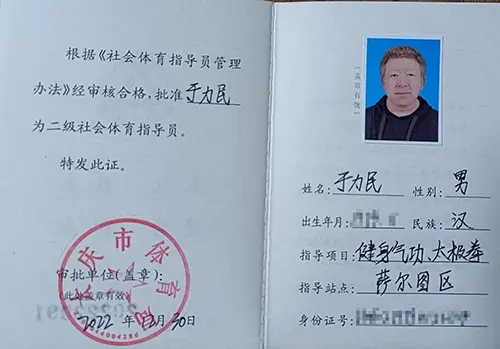 根据《社会体育指导员管理
办法》经审核合格，批准于力民
为二级社会体育指导员。
特发此证。
大庆市体育局
审批单位(盖章)：
(此处盖章有效)
2022年12月30日
(盖章有效)
姓名：于力民 性别：男
出生年月： 民族：汉
指导项目：健身气功、太极拳
指导站点：萨尔图区
身份证号：